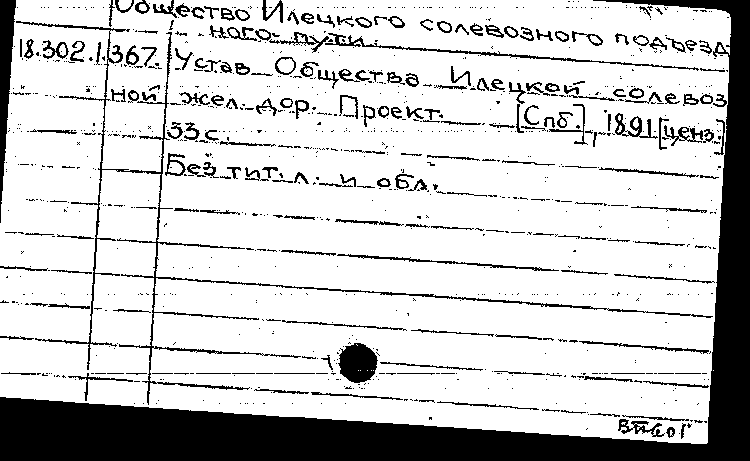 Общество Илецкого солевозного подъезд
ного пути.
18.302.1.367. Устав Общества Илецкой солевоз
ной жел. дор. Проект. [Спб.], 1891 [ценз.]
33 с.
Без тит. л. и обл.